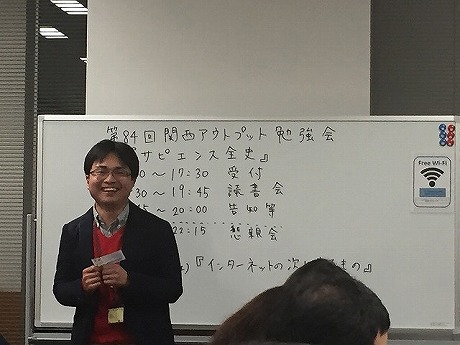 第84回関西アウトプット勉強会
『サピエンス全史』
0〜17:30 受付
30〜19:45 読書会
〜20:00 告知等
22:15 懇親会
『インターネットの次 もの』
Free Wi-Fi